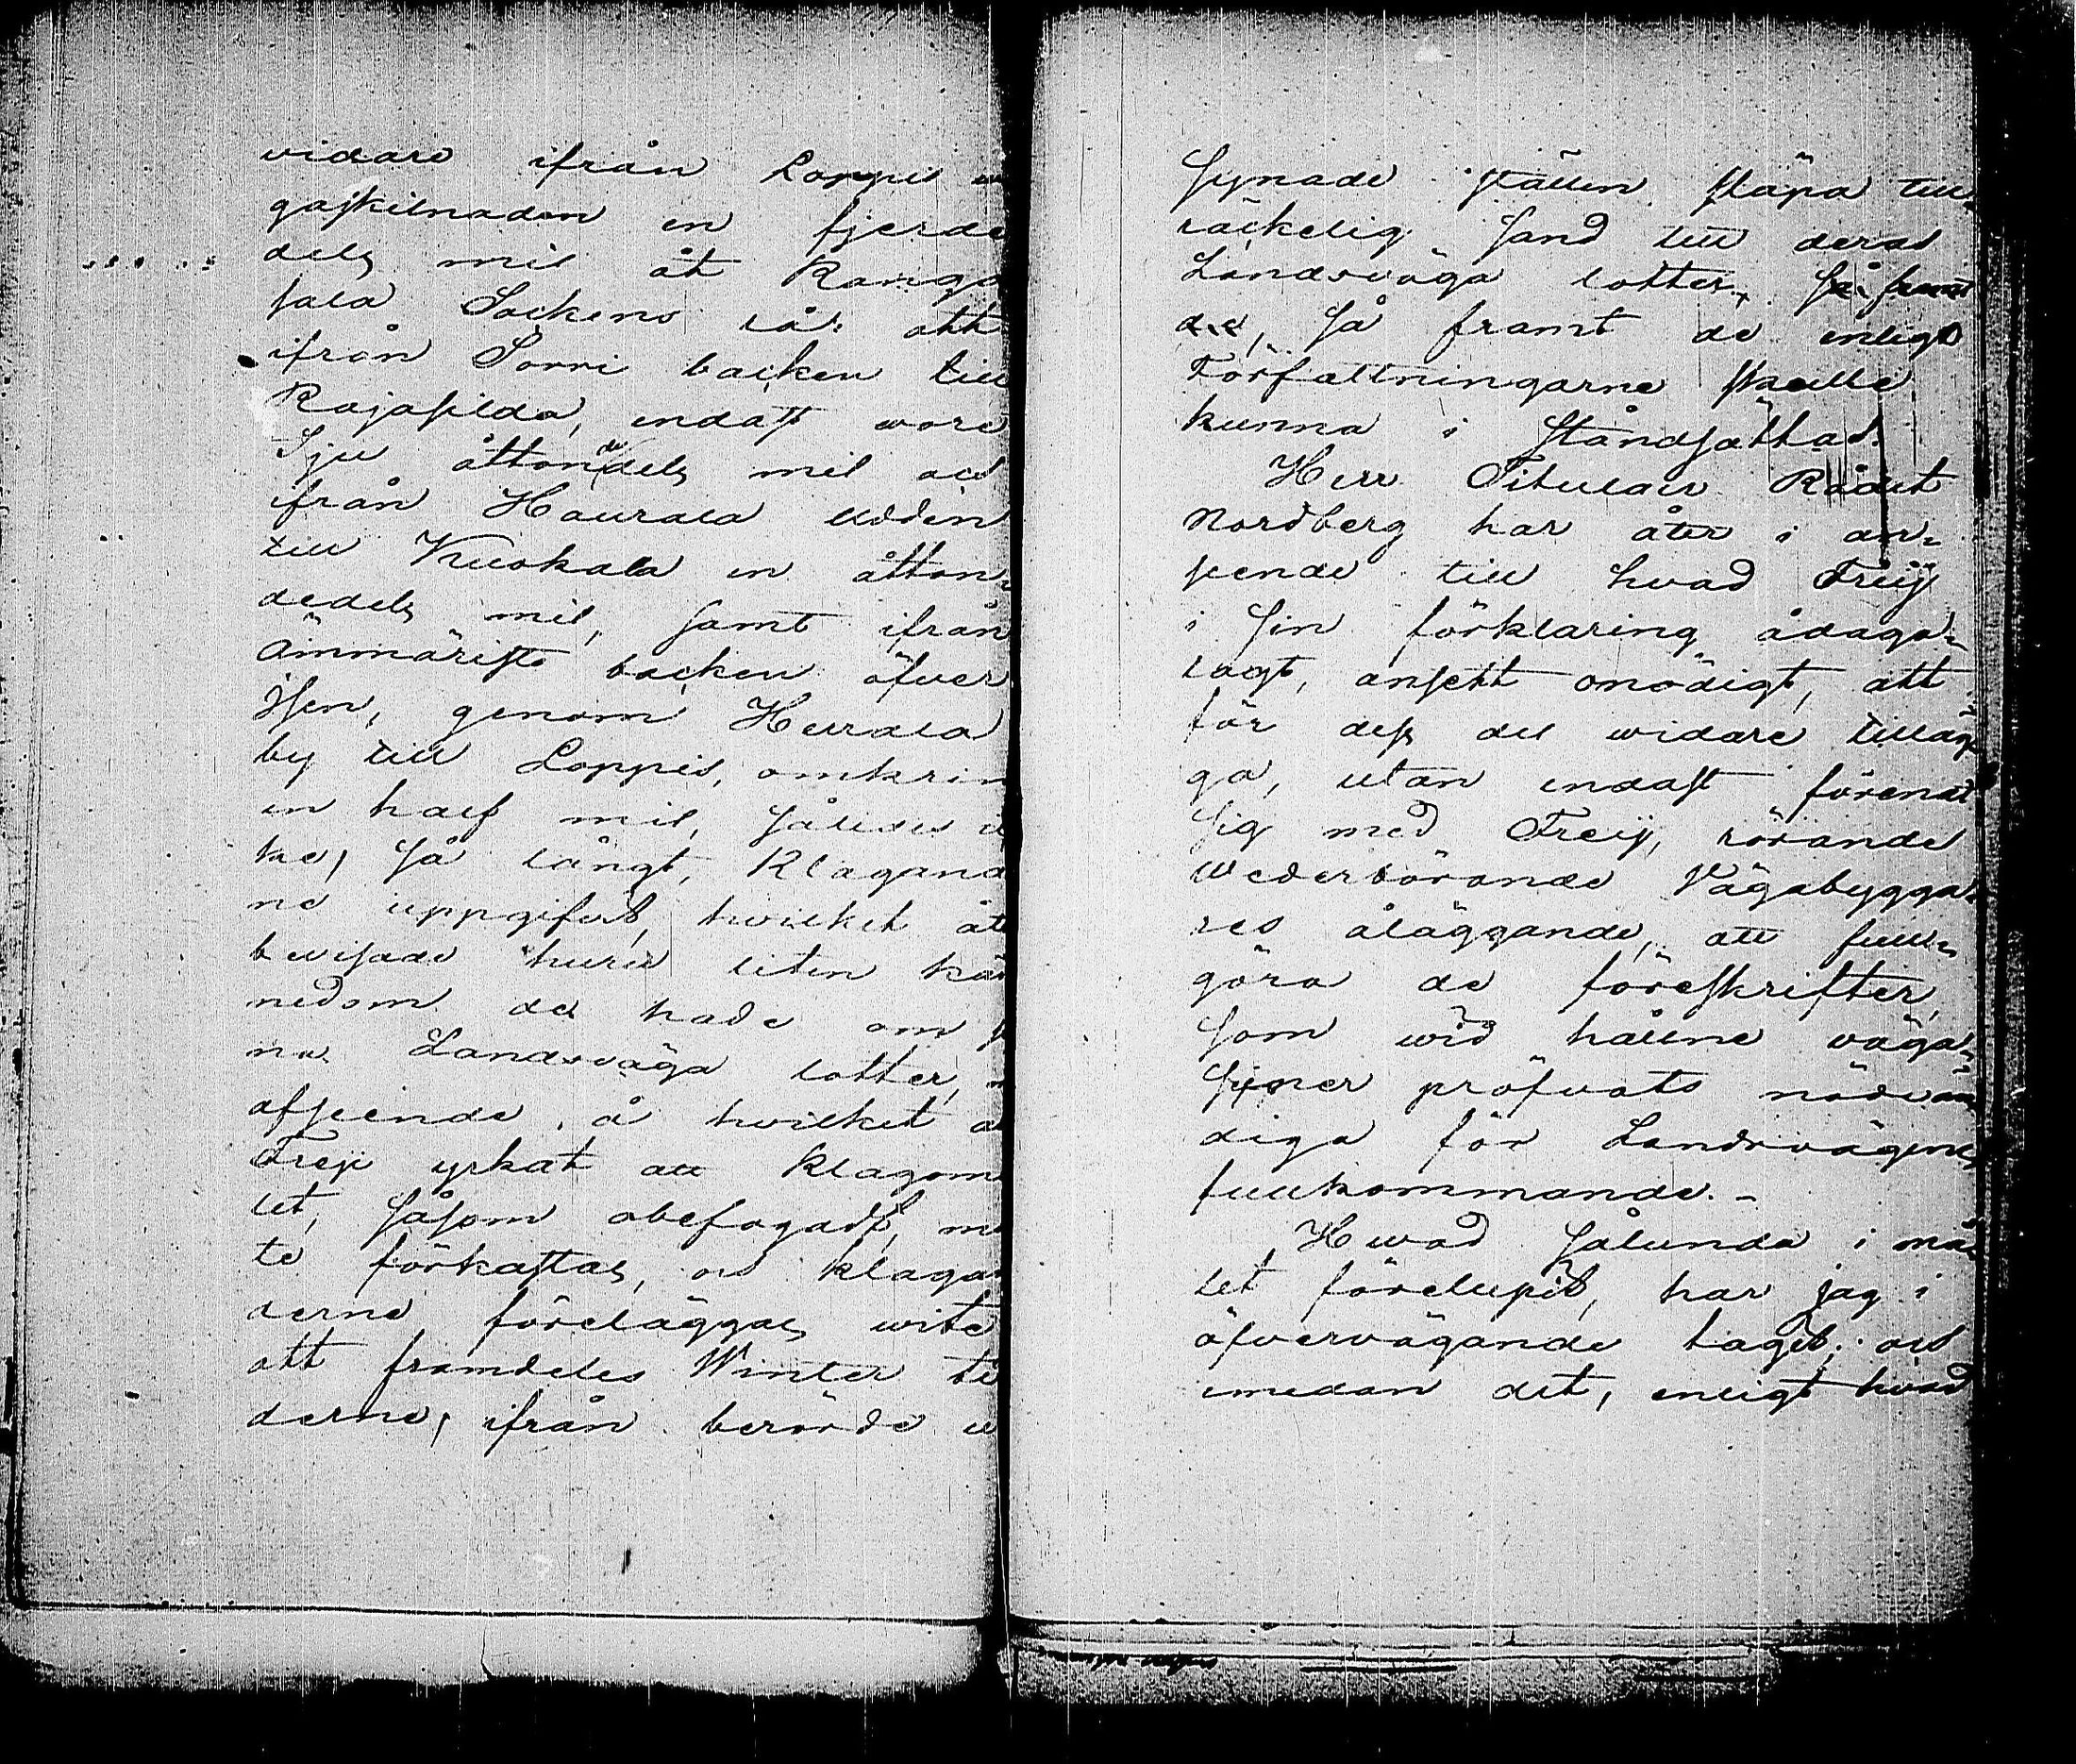 vidare ifrån Loppis
gaskilnaden en fjerde
dels mil åt Kanga
sala Sockens rå: att
ifrån Sorri backen till
Rajasilda, endast wore
Sju åttondedels mil och
ifrån Haurala udden
till Kuokala en åtton¬
dedels mil, samt ifrån
Ämmäristi backen öfver
Isen, genom Herrala
by till Loppis, omkrin
en half mil, således
ke, så långt, Klagand
ne uppgifvit, hvilket åt
bevisade huru liten kän
nedom de hade om
na Landsväga lotter,
afseende å hvilket
Freij yrkat att klagom
let, såsom obefogadt, må
te förkastas, och klagan
derne föreläggas wite
att framdeles Winter ti
derne, ifrån berörde
synade ställen släpa till¬
räckelig sand till deras
Landsväga lotter, så framt
de, så framt de enligt
Författningarne skulle
kunna i ståndsättas.
Herr Titulair Rådet
Nordberg har åter i an¬
seende till hvad Freij
i sin förklaring ådaga¬
lagt, ansett onödigt, att
för dess del widare tilläg
ga, utan endast förenat
sig med Freij, rörande
wederbörande Vägabygga¬
res åläggande, att full¬
göra de föreskrifter,
som wid hållne väga¬
syner pröfvats nödvän
diga för Landsvägens
fullkommande. -
Hwad sålunda i må¬
let förelupit, har jag i
öfvervägande tagit; och
emedan det, enligt hvad